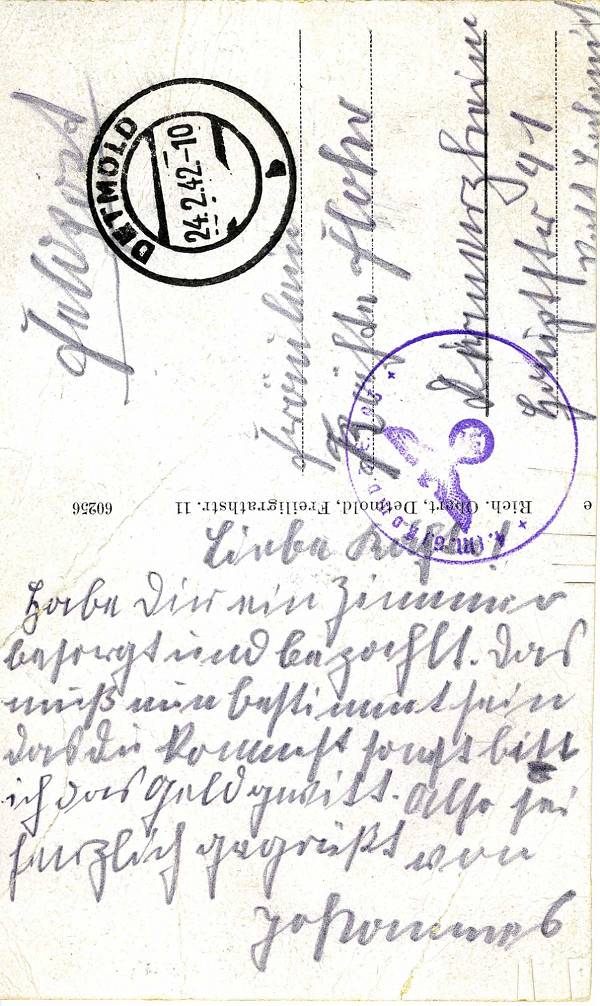 Feldpost
DETMOLD
24.2.42.-10
b
Fräulein
Käthe Flohr
Hauptstr 41
Rich. Obert, Detmold, Freiligrathstr. 11
60256
Liebe Käthe!
Habe Dir ein Zimmer
besorgt und bezahlt. Das
muß nun bestimmt sein
das du kommst sonst bin
ich das Geld quitt. Also sei
herzlich gegrüßt von
Johannes